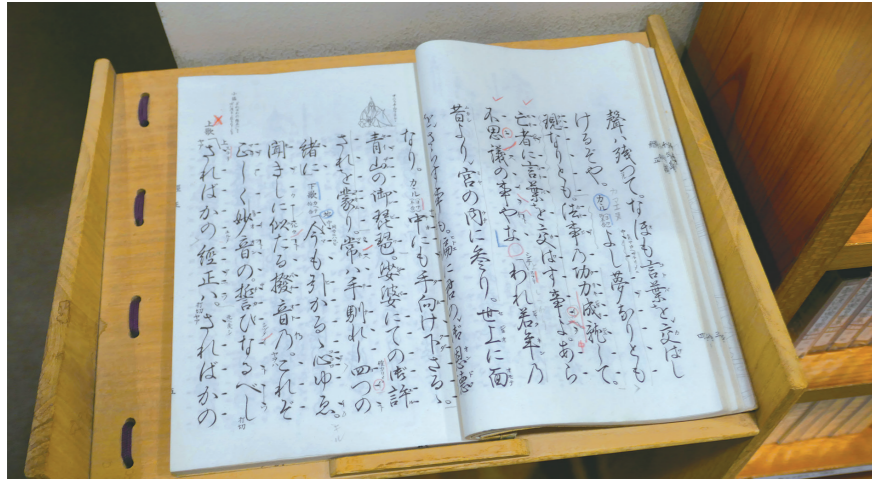 聲ハ残つて。なほも言葉を交はし
けるぞや。カル よし夢なりとも
現なりとも。法事乃功力成就して。
亡者に言葉を交はす事よ。あら
不思議の事やな。われ若年乃
昔より。宮の内に参り。世上に面
をさらす事も。偏に君の御恩徳
なり。カル 中にも手向け下さるゝ。
青山の御琵琶。娑婆にての御許
されを蒙り。常ハ手馴れし四つの
緒に。下歌 今も引かるゝ心ゆゑ。
聞きしに似たる撥音乃。これぞ
正しく妙音の誓ひなるべし。
上歌
さればかの經正ハ。さればかの